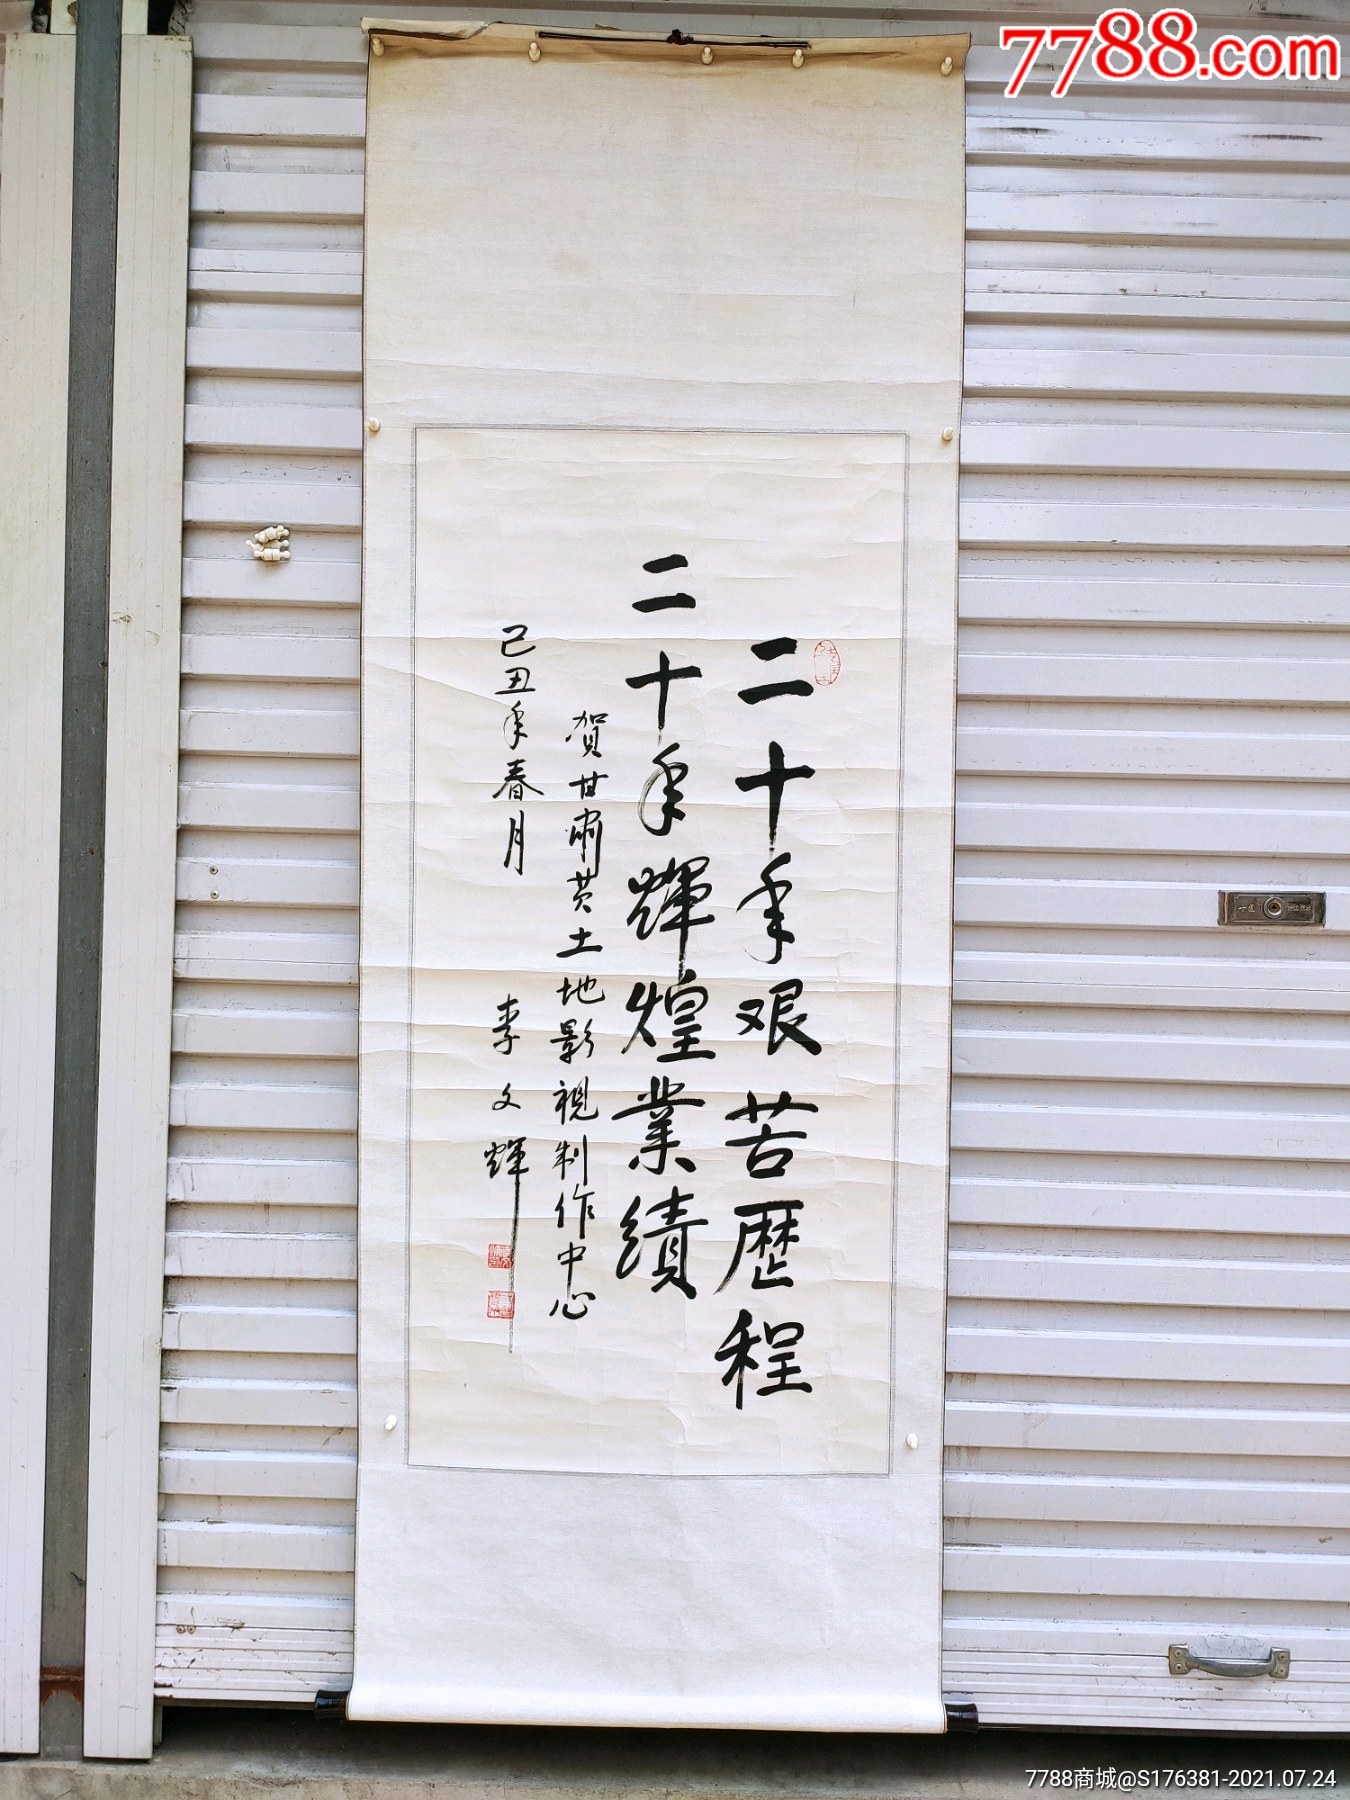 7788.com
二十年艰苦歷程
二十年輝煌業績
贺甘肅黄土地影視制作中心
己丑年春月
李文輝
7788商城@S176381-2021.07.24